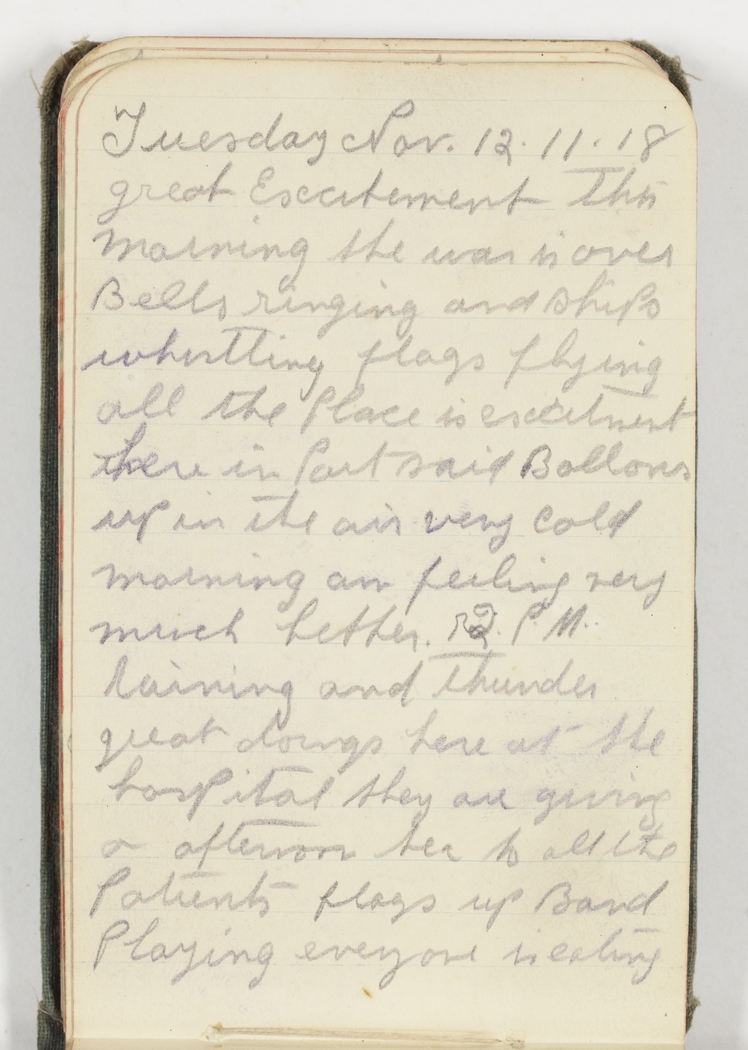 Tuesday Nov. 12.11.18
great Excitement This
morning the war is over
Bells ringing and ships
whistling flags flying
all the Place is excitment
there in Port Said Ballons
up in the air very cold
morning am feeling very
much better. 12. P.M.
Raining and thunder
great doings here at the
hospital they are giving
a afternoon tea to all the
Patients flags up Band
Playing everyone is eating